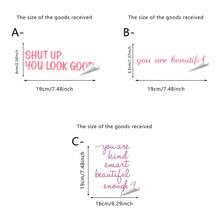 The size of the goods received
The size of the goods received
A-
B-
SHUT UP
YOU LOOK GOOD
you are beautiful
19cm/7.48inch
19cm/7.48inch
The size of the goods received
C-
you are
kind
smart
beautiful
enough
19cm/7.48inch
16cm/6.29inch